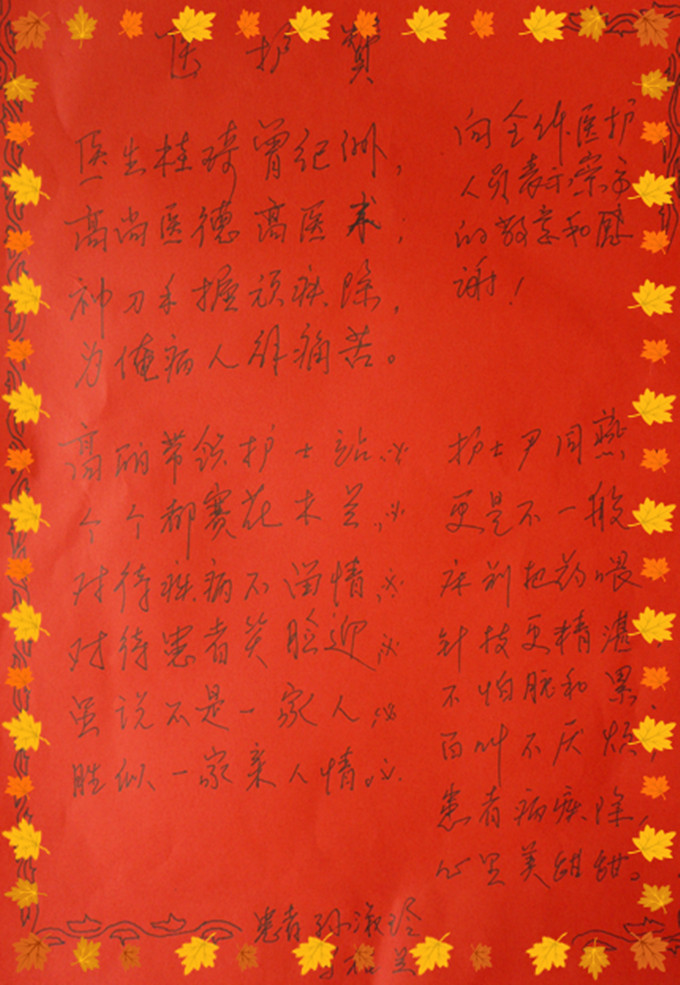 医护赞
医生桂琦曾纪洲,
高尚医德高医术;
神刀手握顽疾除,
为俺病人解痛苦。
高丽带领护士站,
个个都赛花木兰,
对待疾病不留情,
对待患者笑脸迎,
虽说不是一家人,
胜似一家亲人情。
向全体医护
人员表示崇高
的敬意和感
谢!
护士尹月燕,
更是不一般
床前把药喂
针技更精湛
不怕脏和累,
百叫不厌烦,
患者病疾除,
心里美甜甜。
患者孙淑玲